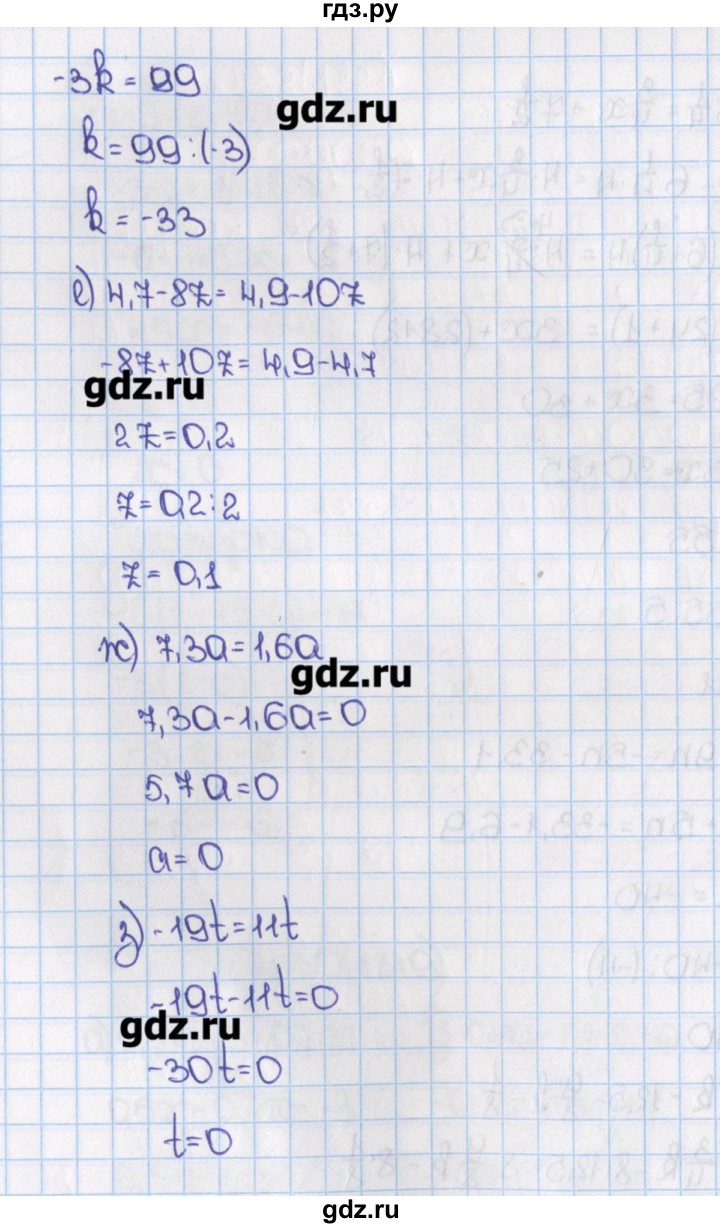 гдз.ру
-3k = 99
gdz.ru
k = 99:(-3)
k = -33
е) 4,7-8z = 4,9-10z
-8z+10z = 4,9-4,7
gdz.ru
2z=0,2
z=0,2:2
z = 0,1
ж) 7,3a=1,6a
gdz.ru
7,3a-1,6a=0
5,7a=0
a=0
з) -19t=11t
-19t-11t=0
gdz.ru
-30t=0
t=0
gdz.ru